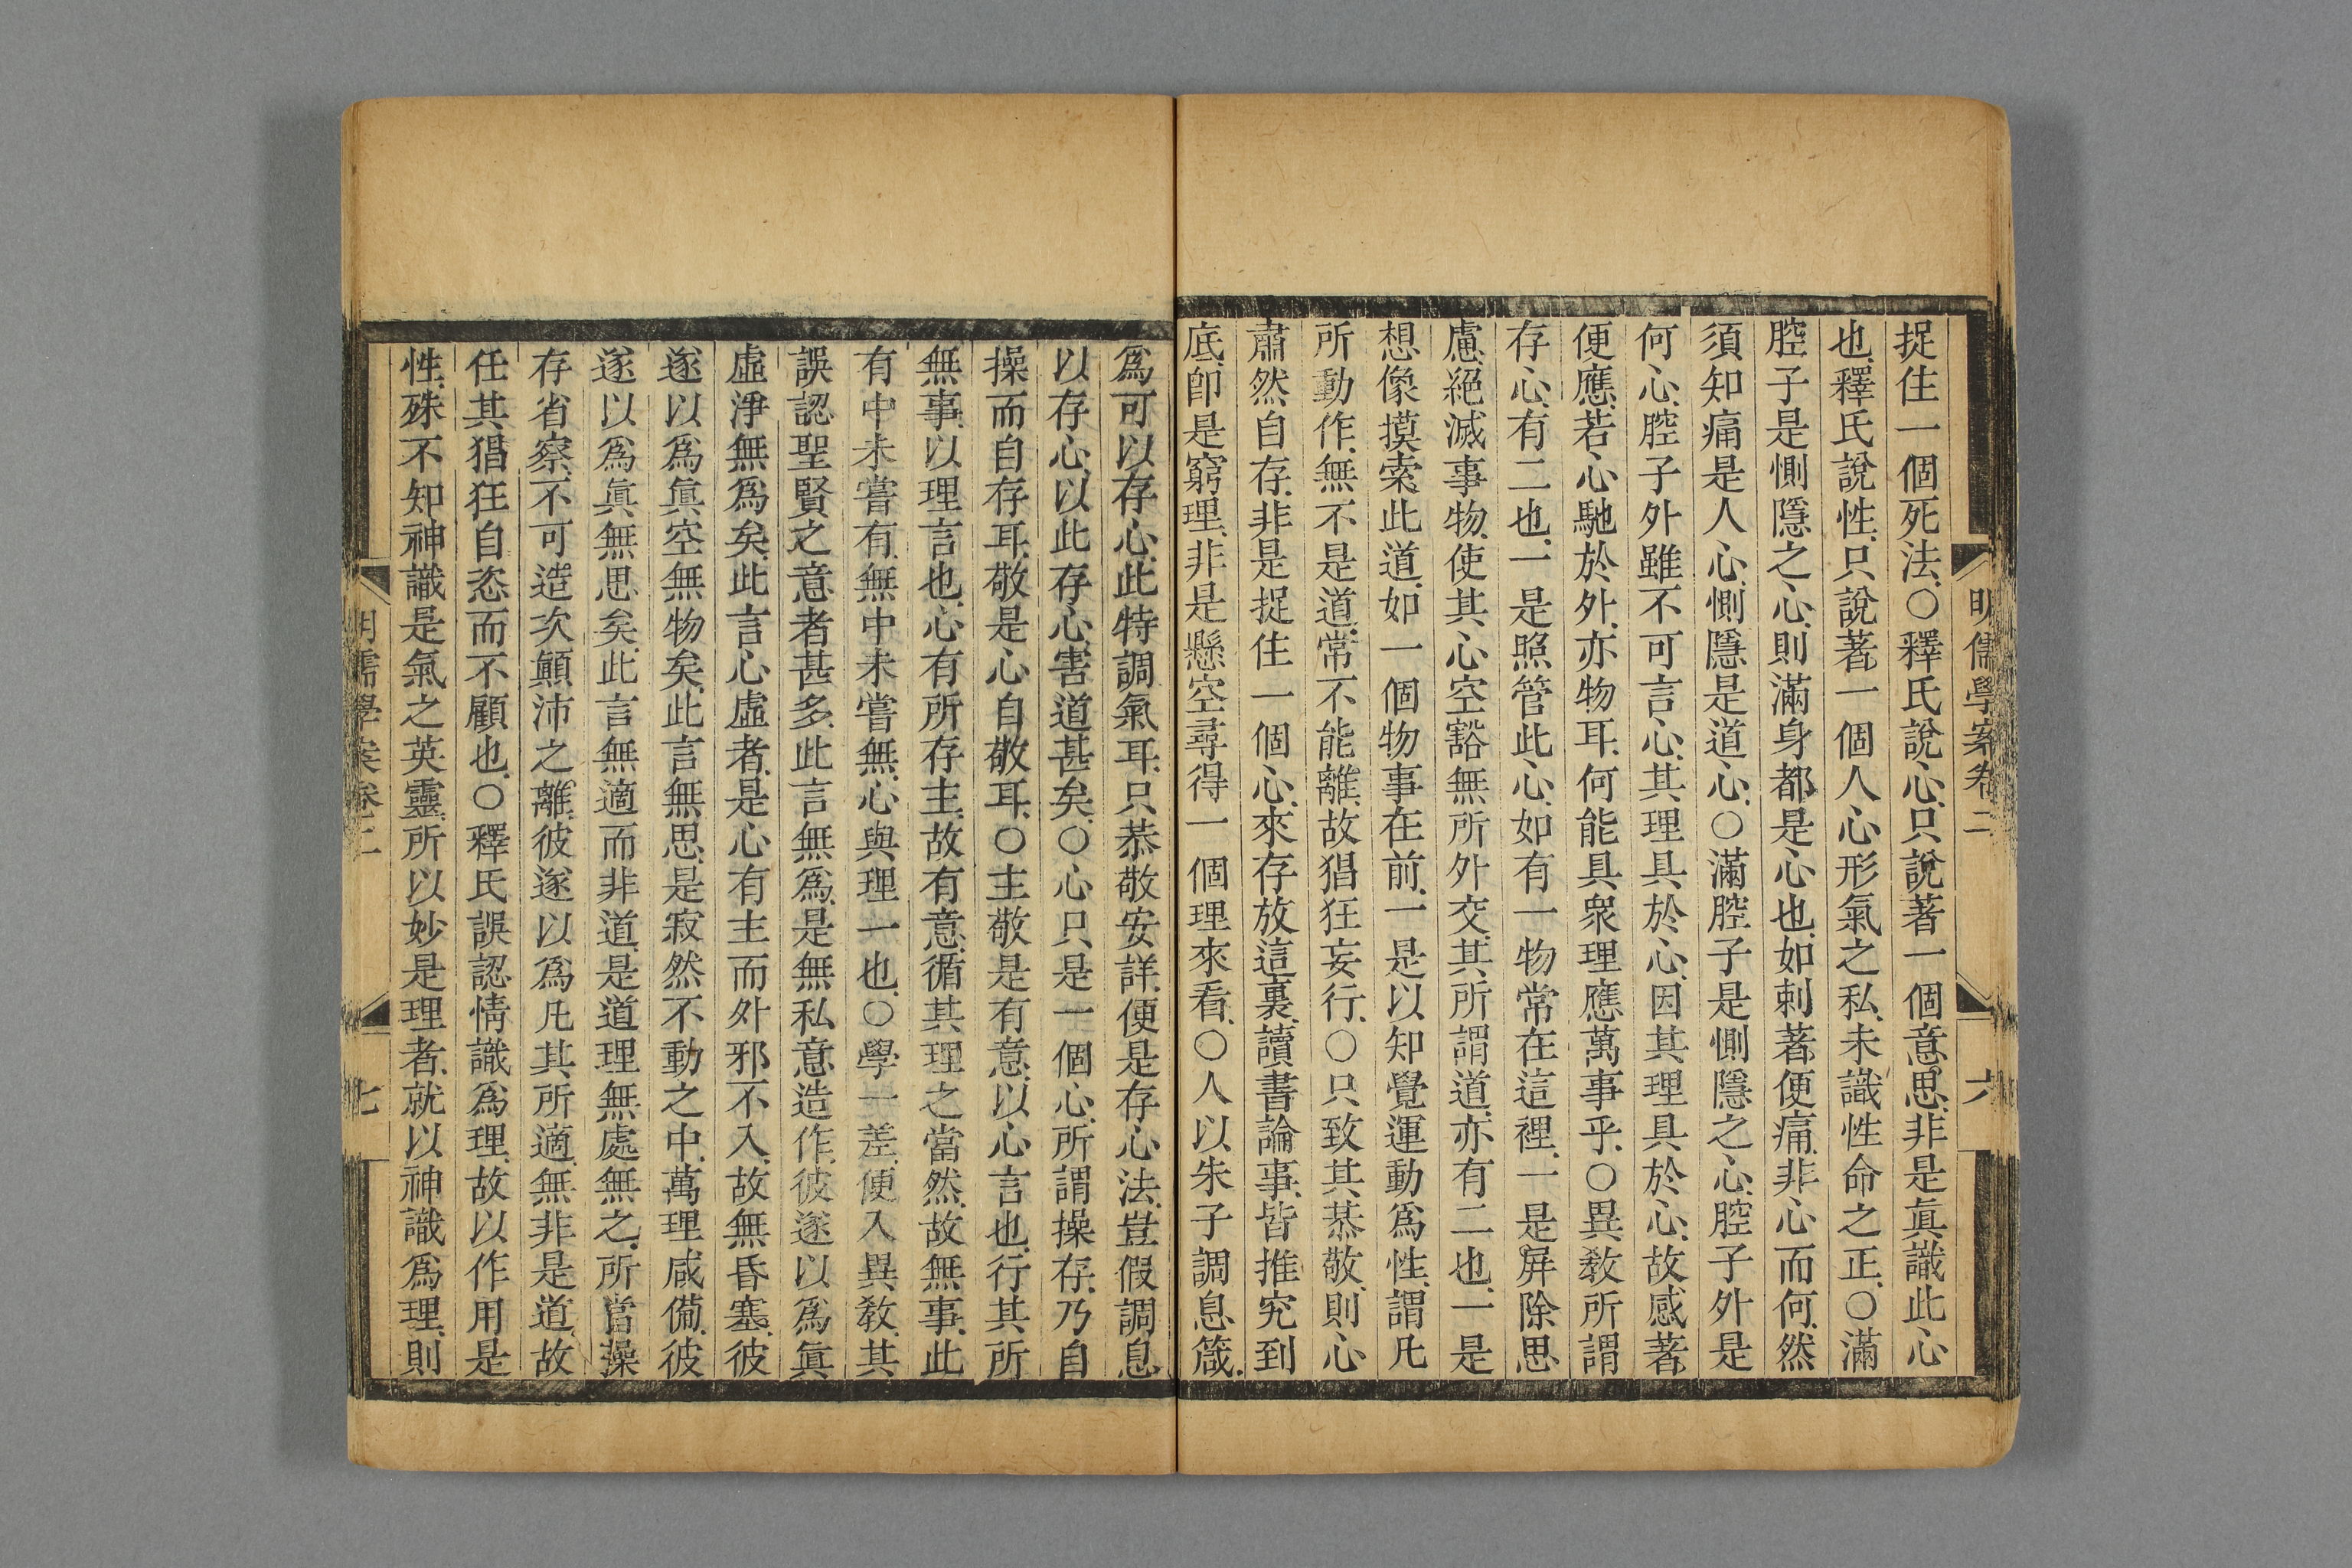 明儒學案卷二
六
捉住一個死法、○釋氏說心、只說著一個意思、非是真識此心
也、釋氏說性、只說著一個人心形氣之私、未識性命之正、○滿
腔子是惻隱之心、則滿身都是心也、如刺著便痛、非心而何、然
須知痛是人心、惻隱是道心、○滿腔子是惻隱之心、腔子外是
何心、腔子外雖不可言心、其理具於心、因其理具於心、故感著
便應、若心馳於外、亦物耳、何能具衆理應萬事乎、○異敎所謂
存心、有二也、一是照管此心、如有一物常在這裡、一是屏除思
慮、絕滅事物、使其心空豁無所外交、其所謂道、亦有二也、一是
想像摸索此道、如一個物事在前、一是以知覺運動爲性、謂凡
所動作、無不是道、常不能離、故猖狂妄行、○只致其恭敬、則心
肅然自存、非是捉住一個心、來存放這裏、讀書論事、皆推究到
底、卽是窮理、非是懸空尋得一個理來看、○人以朱子調息箴、
爲可以存心、此特調氣耳、只恭敬安詳、便是存心法、豈假調息
以存心、以此存心、害道甚矣、○心只是一個心、所謂操存、乃自
操而自存耳、敬是心自敬耳、○主敬是有意、以心言也、行其所
無事、以理言也、心有所存主、故有意、循其理之當然、故無事、此
有中未嘗有、無中未嘗無、心與理一也、○學一差、便入異敎、其
誤認聖賢之意者甚多、此言無爲、是無私意造作、彼遂以爲眞
虛淨無爲矣、此言心虛者、是心有主而外邪不入、故無昏塞、彼
遂以爲眞空無物矣、此言無思、是寂然不動之中、萬理咸備、彼
遂以爲眞無思矣、此言無適而非道、是道理無處無之、所當操
存省察、不可造次顚沛之離、彼遂以爲凡其所適、無非是道、故
任其猖狂自恣而不顧也、○釋氏誤認情識爲理、故以作用是
性、殊不知神識是氣之英靈、所以妙是理者、就以神識爲理、則
明儒學案卷二
七